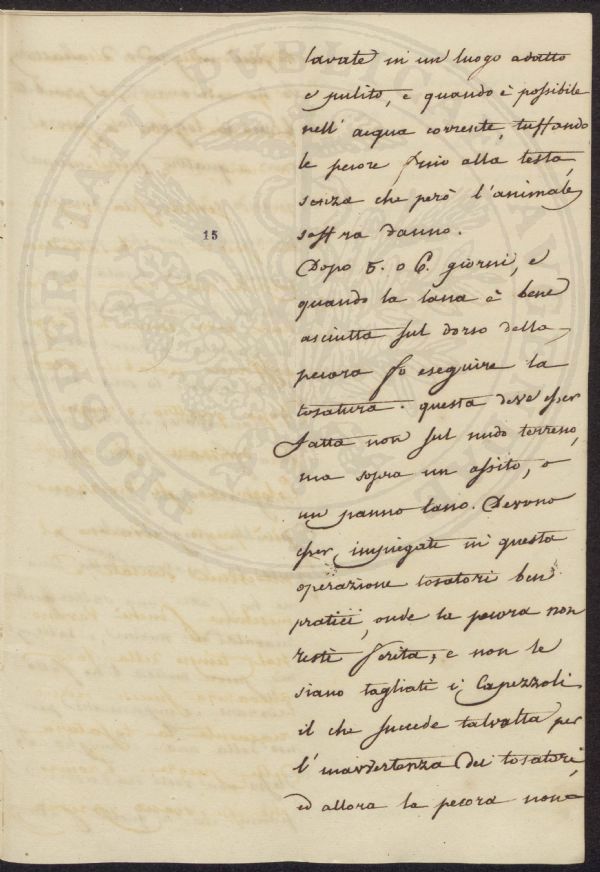 lavate in un luogo adatto
e pulito, e quando è possibile
nell' acqua corrente, tuffando
le pecore fino alla testa,
senza che però l'animale
soffra danno.
15
Dopo 5. o 6. giorni, e
quando la lana è bene
asciutta sul dorso della
pecora fo eseguire la
tosatura. questa deve esser
fatta non sul nudo terreno,
ma sopra un assito, o
un panno lano. Devono
esser impiegati in questa
operazione tosatori ben
pratici, onde la pecora non
resti ferita, e non le
siano tagliati i Capezzoli
il che succede talvolta per
l'inavvertenza dei tosatori,
ed allora la pecora non
PROSPERITATI PUBLICAE